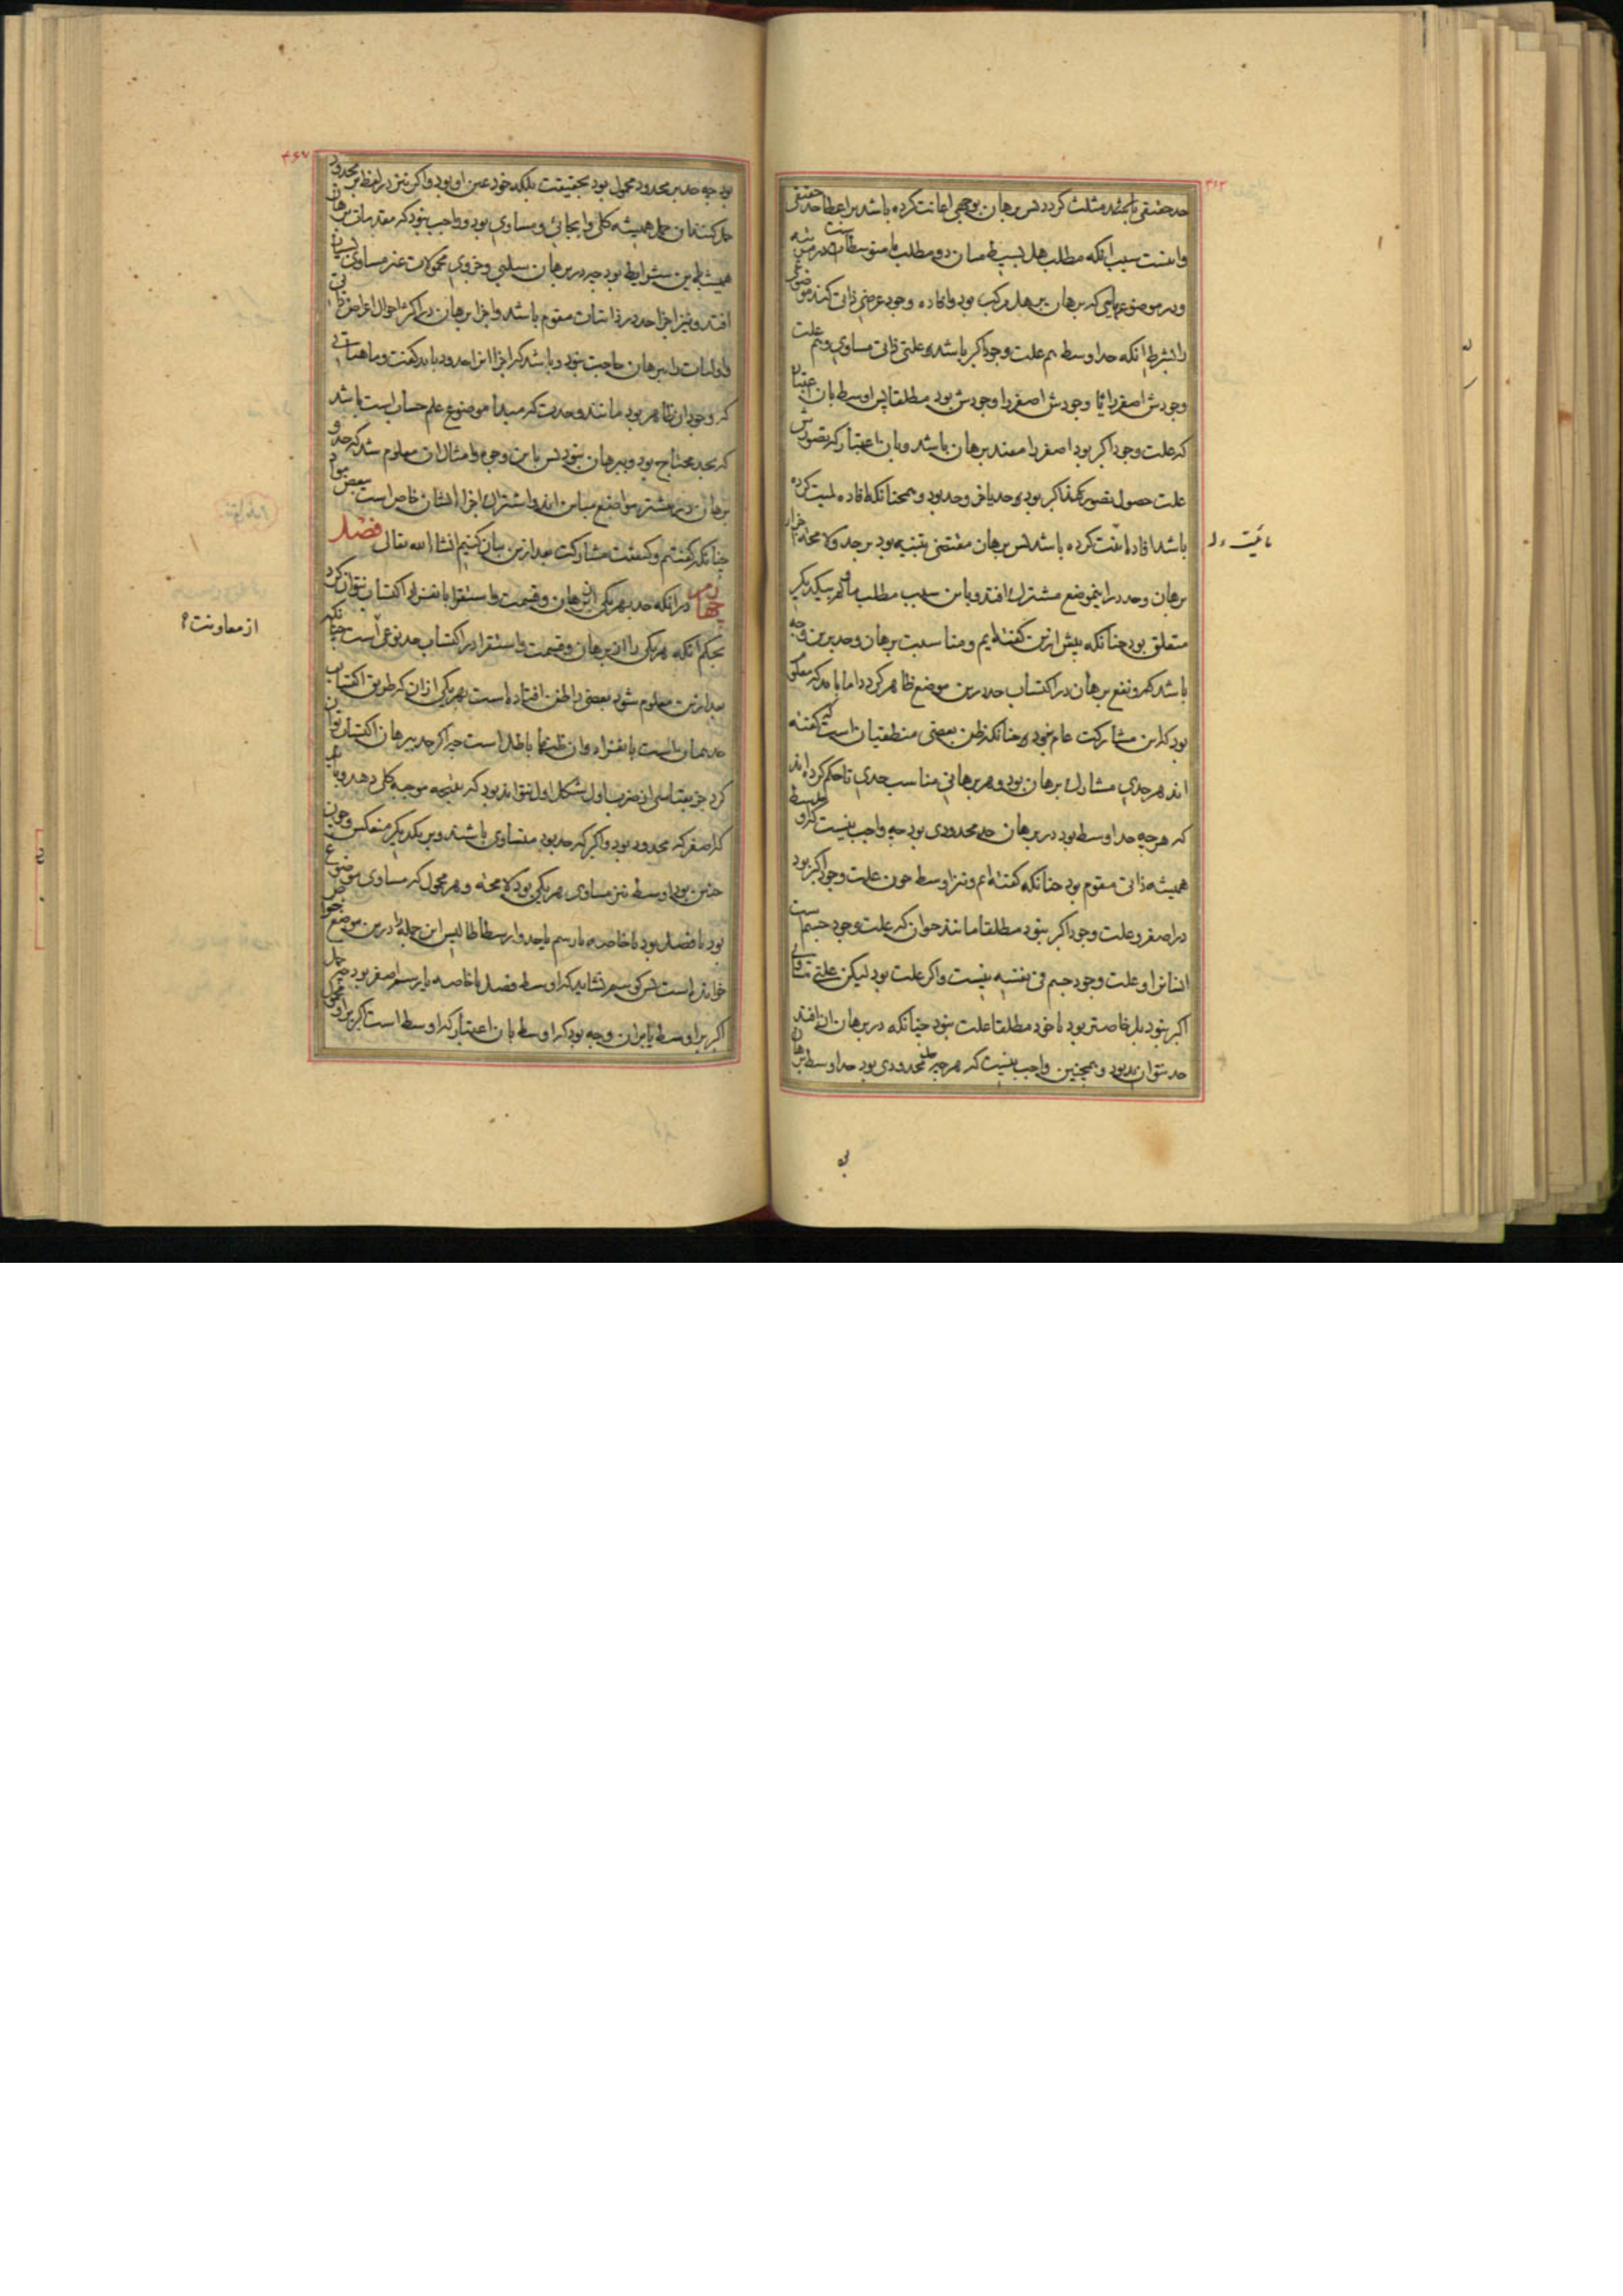 حد حقیقی تا بحد مثلث کردد پس برهان بوجهی اعانت کرده باشد بر اعطا حد حقیقی
و اینست سبب انکه مطلب هل بسیط میان دو مطلب ما متوسطست در مرتبه
و در موضوعهایی که برهان بر هل مرکب بود و افاده وجود عرضی ذاتی کند موضوع
را بشرط انکه حد اوسط هم علت وجود اکبر باشد و علتی ذاتی مساوی و هم علت
وجودش اصغر را وجودش اصغر را وجودش بود مطلقا پس اوسط بان اعتبار
که علت وجود اکبر بود اصغر را مفید برهان باشد و بان اعتبار که تصورش
علت حصول تصور اکبر بود حد یا جزو حد بود و همچنانکه افاده لمیت کرده
باشد افاده مائیت کرده باشد پس برهان مقتضی تنبیه بود بر حد و لا محاله اجزاء
برهان و حد درین موضع مشترک افتد و باین سبب مطلب ما و لم بیکدیکر
متعلق بود چنانکه پیش ازین کفته‌ایم و مناسبت برهان و حد برین وجه
باشد که و نفع برهان در اکتساب حد درین موضع ظاهر کردد اما باید که معلوم
بود که این مشارکت عام نبود چنانکه ظن بعضی منطقیان است که کفته
اند هر حدی مشارک برهان بود و هر برهانی مناسب حدی تا حکم کرده‌اند
که هر چه حد اوسط بود در برهان حد محدودی بود چه واجب نیست که اوسط
همیشه ذاتی مقوم بود چنانکه کفته‌ایم و نیز اوسط چون علت وجود اکبر بود
در اصغر و علت وجود اکبر نبود مطلقا مانند حیوان که علت وجود جسم است
انسان را و علت وجود جسم فی نفسه نیست و اکر علت بود لیکن علتی مساوی
اکبر نبود بل خاصتر بود تا خود مطلقا علت نبود چنانکه در برهان ان افتد
حد نتواند بود و همچنین واجب نیست که هر چه حد محدودی بود حد اوسط برهان
مائیت
۴۶۷
بود چه حد بر محدود محمول بود بحقیقت بلکه خود عین او بود و اکر نیز در لفظ بر محدود
حمل کنند آن حمل همیشه کلی و ایجابی و مساوی بود و واجب نبود که مقدمات برهان
همیشه باین شرایط بود چه در برهان سلبی و جزوی محمولات غیر مساوی بسیار
افتد و نیز اجزاء حد در ذاتیات مقوم باشد و اجزاء برهان در اکثر احوال اعراض ذاتی
و اولیات را ببرهان حاجت نبود و باشد که اجزاء انرا حدود باید کفت و ماهیاتی
که وجود ان ظاهر بود مانند وحدت که مبدأ موضوع علم حسابست باشد
که بحد محتاج بود و ببرهان نبود پس باین وجوه و امثال ان معلوم شد که حد و
برهان در بیشتر مواضع متباین‌اند و اشتراک اجزاء ایشان خاص است ببعض مواد
چنانکه کفتیم و کیفیت مشارکت بعد ازین بیان کنیم انشا الله تعالی فصل
چهارم در انکه حد بهر یکی از برهان و قسمت و استقرا بانفراد اکتساب نتوان کرد
بحکم آنکه هر یکی را از برهان و قسمت و استقرا در اکتساب حد نوعی است چنانکه
بعد ازین معلوم شود بعضی را ظن افتاده است بهر یکی از ان که طریق اکتساب
حد همانست بانفراد و ان ظنها باطل است چه اکر حد ببرهان اکتساب توان
کرد جز بقیاسی از ضرب اول شکل اول نتواند بود که نتیجه موجبه کلی دهد و باید
که اصغر که محدود بود و اکبر که حد بود متساوی باشند و بر یکدیکر منعکس و چون
چنین بود اوسط نیز مساوی هر یکی بود لا محاله و هر محمول که مساوی موضوع
بود یا فصل بود یا خاصه یا رسم یا حد و ارسطاطالیس این جمله را درین موضع خواص
خوانده است پس کوییم نشاید که اوسط فصل یا خاصه یا رسم اصغر بود چه حمل
اکبر بر اوسط یا بران وجه بود که اوسط بان اعتبار که اوسط است اکبر بر او محمول
از معاونت؟